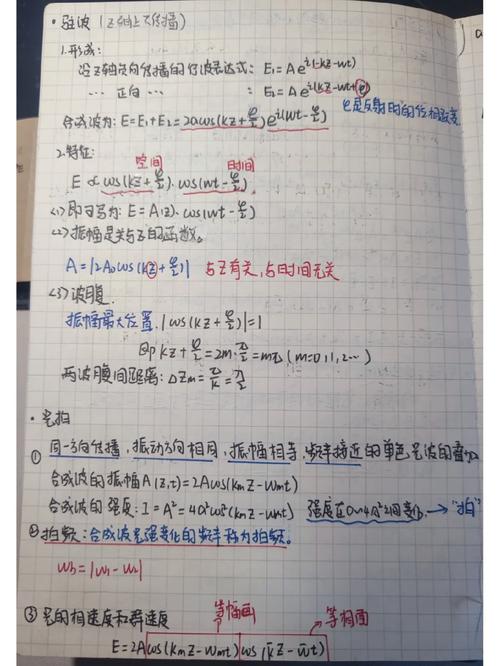 · 驻波（Z轴上传播）
1.形成：
设Z轴负向传播的行波表达式：E₁=Ae^{i(-kz-wt)}
… 正向 …： E₂=Ae^{i(kz-wt+φ)}
合成波为：E=E₁+E₂=2acos(kz+φ/2)e^{i(wt-φ/2)} φ是反射时的位相
2.特征：
空间 时间
E∝cos(kz+φ/2)·cos(wt-φ/2)
<1>即可写为：E=A(z)·cos(wt-φ/2)
<2>振幅是关与Z的函数。
A=|2A₀cos(kz+φ/2)| 与Z有关，与时间无关
<3>波腹.
振幅最大位置.|cos(kz+φ/2)|=1
即kz+φ/2=2m·π/2=mπ(m=0,1,2…)
两波腹间距离：ΔZm=π/k=λ/2
· 光拍
① 同一方向传播，振动方向相同，振幅相等，频率接近的单色光波的叠加
合成波的振幅A(z,t)=2Acos(kmz-wmt)
合成波的强度：I=A²=4a²cos²(kmz-wmt) 强度在0~4a²之间变化→"拍"
②拍频：合成波光强变化的频率称为拍频。
wb=|w₁-w₂|
③ 光的相速度和群速度 等幅面 等相面
E=2Acos(kmz-wmt)cos(k̄z-w̄t)